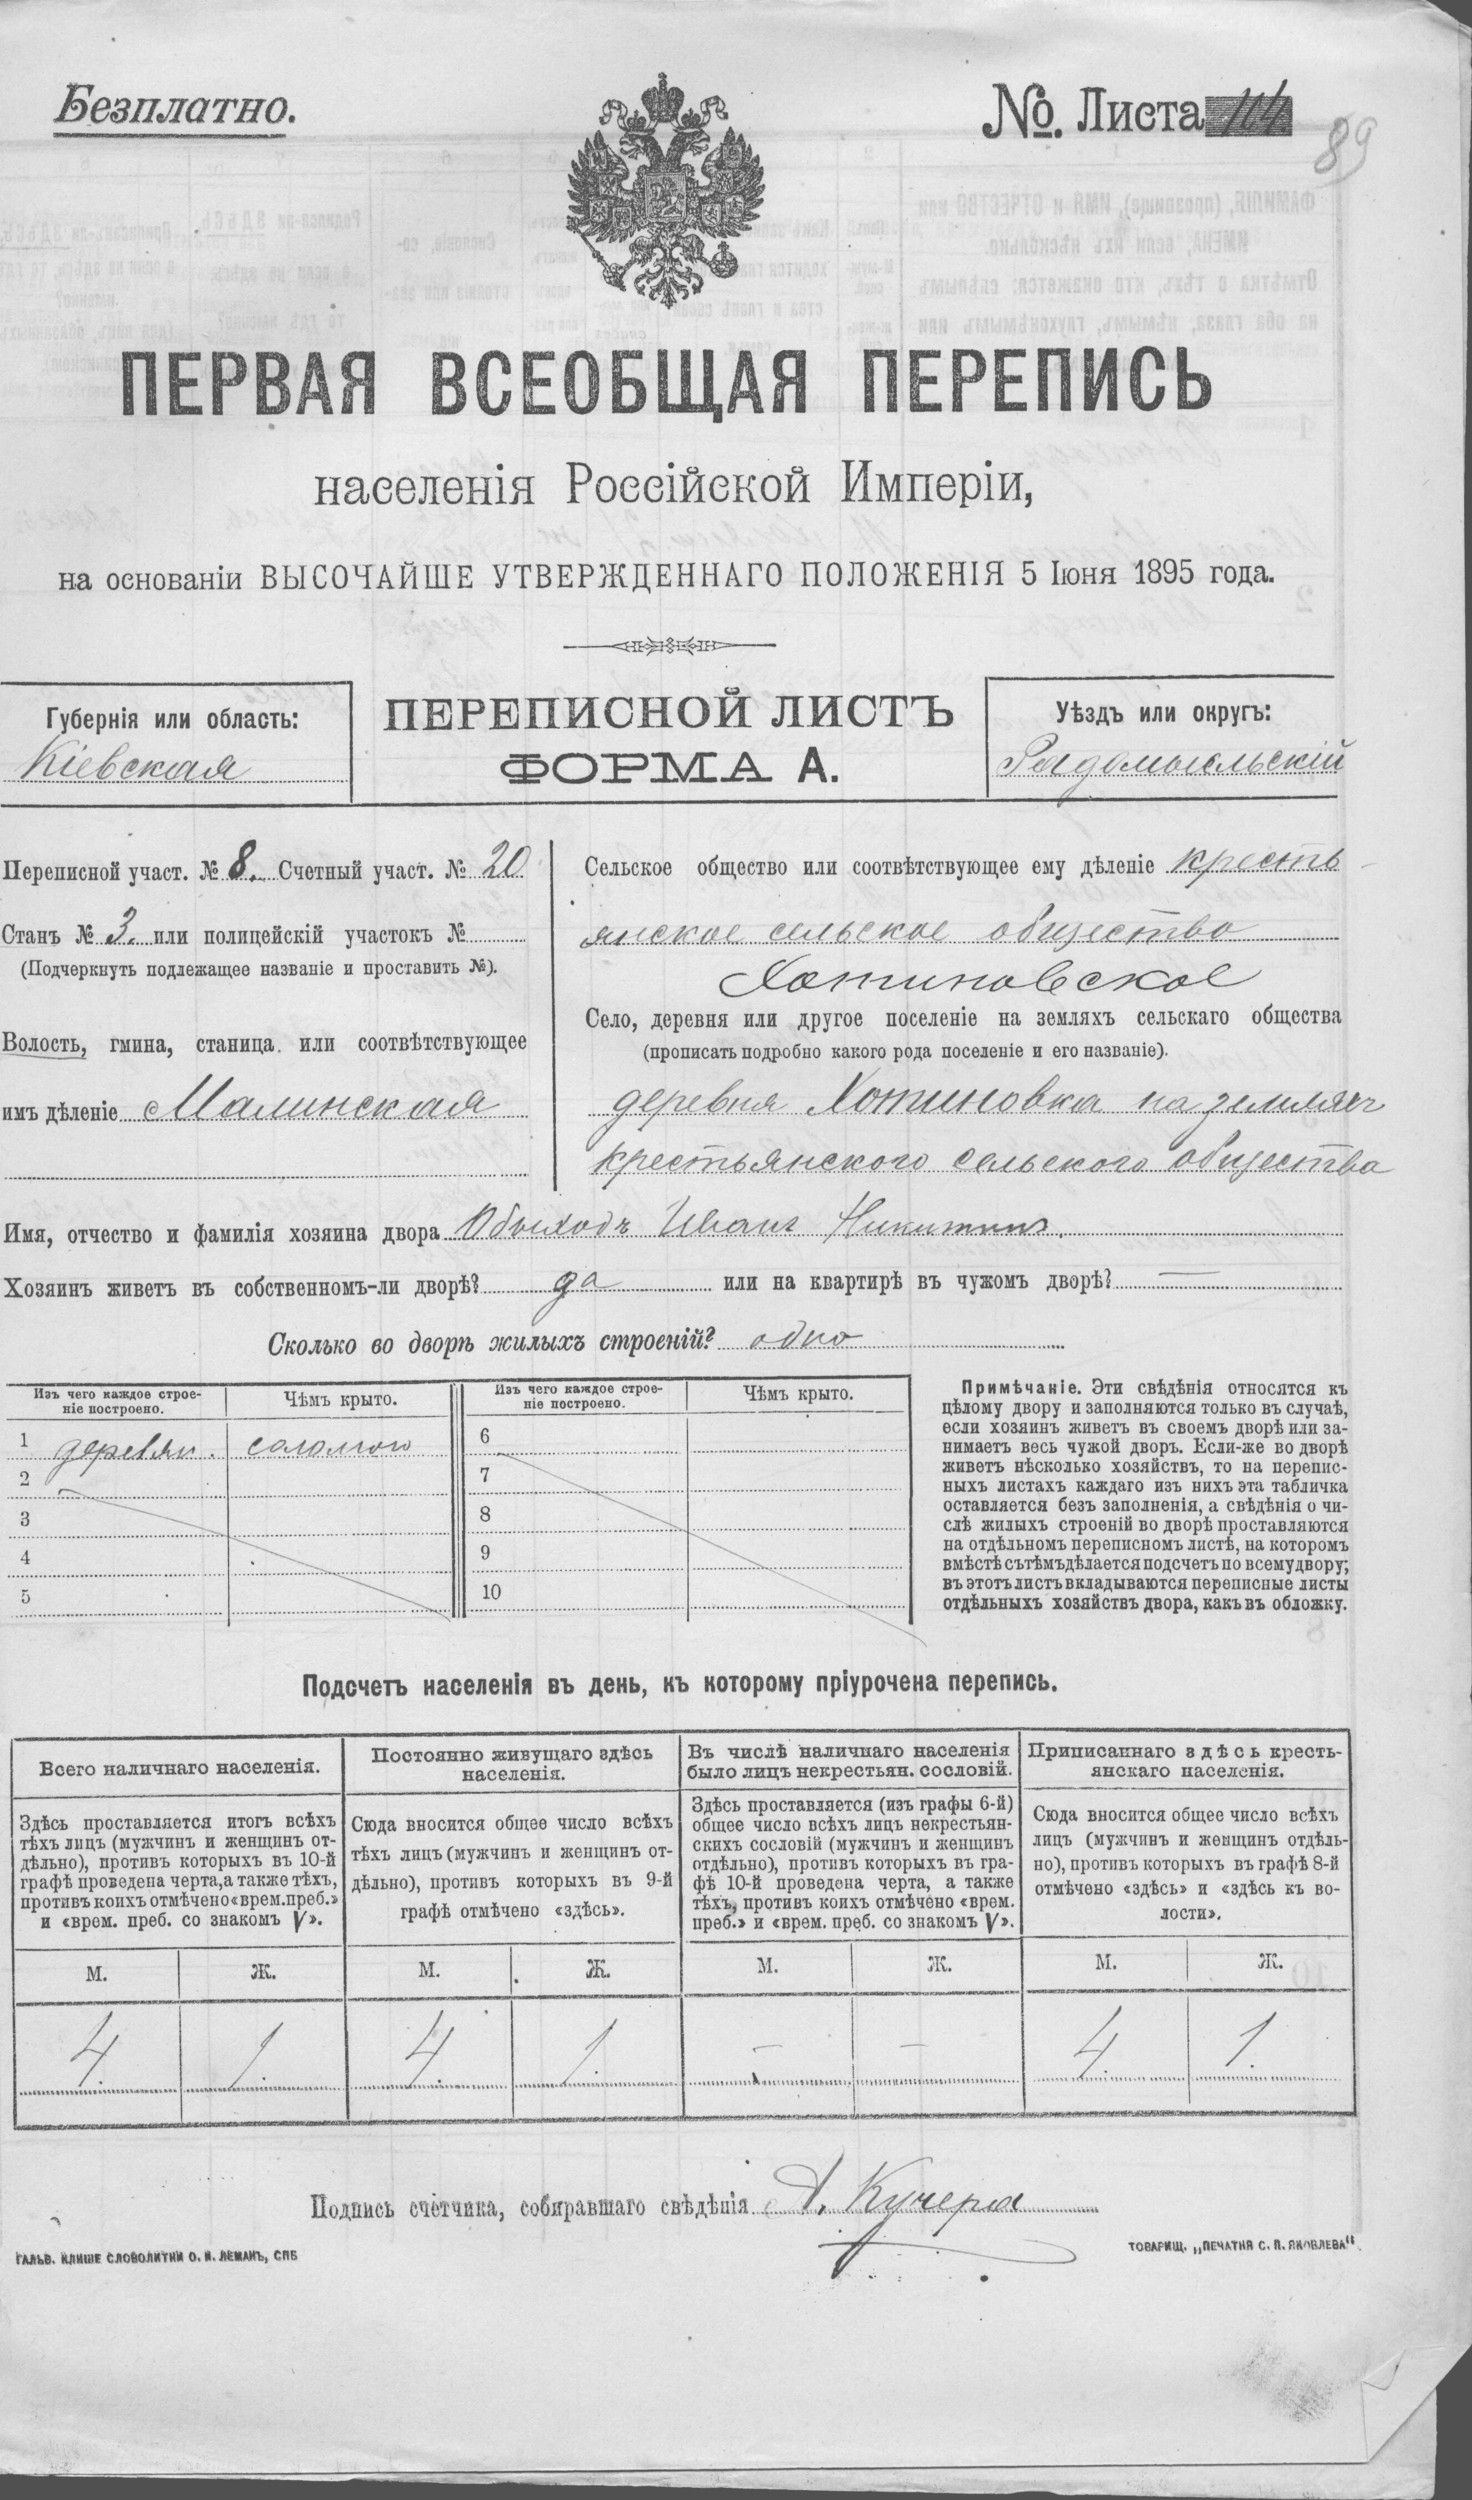 Безплатно.
№. Листа 114
89
ПЕРВАЯ ВСЕОБЩАЯ ПЕРЕПИСЬ
населенія Россійской Имперіи,
на основаніи ВЫСОЧАЙШЕ УТВЕРЖДЕННАГО ПОЛОЖЕНІЯ 5 Іюня 1895 года.
Губернія или область:
Кіевская
ПЕРЕПИСНОЙ ЛИСТЪ
ФОРМА А.
Уѣздъ или округъ:
Радомысльскій
Переписной участ. № 8. Счетный участ. № 20
Станъ № 3. или полицейскій участокъ №
(Подчеркнуть подлежащее названіе и проставить №).
Волость, гмина, станица или соотвѣтствующее
имъ дѣленіе Малинская
Сельское общество или соотвѣтствующее ему дѣленіе кресть-
янское сельское общество
Хотиновское
Село, деревня или другое поселеніе на земляхъ сельскаго общества
(прописать подробно какого рода поселеніе и его названіе).
деревня Хотиновка на земляхъ
крестьянского сельского общества
Имя, отчество и фамилія хозяина двора Обыходъ Иванъ Никитинъ.
Хозяинъ живетъ въ собственномъ-ли дворѣ? да или на квартирѣ въ чужомъ дворѣ? —
Сколько во дворѣ жилыхъ строеній? одно
Изъ чего каждое строе-
ніе построено.
Чѣмъ крыто.
Изъ чего каждое строе-
ніе построено.
Чѣмъ крыто.
1 деревян. соломою
2
3
4
5
6
7
8
9
10
Примѣчаніе. Эти свѣдѣнія относятся къ
цѣлому двору и заполняются только въ случаѣ,
если хозяинъ живетъ въ своемъ дворѣ или за-
нимаетъ весь чужой дворъ. Если-же во дворѣ
живетъ нѣсколько хозяйствъ, то на перепис-
ныхъ листахъ каждаго изъ нихъ эта табличка
оставляется безъ заполненія, а свѣдѣнія о чи-
слѣ жилыхъ строеній во дворѣ проставляются
на отдѣльномъ переписномъ листѣ, на которомъ
вмѣстѣ съ тѣмъ дѣлается подсчетъ по всему двору;
въ этотъ листъ вкладываются переписные листы
отдѣльныхъ хозяйствъ двора, какъ въ обложку.
Подсчетъ населенія въ день, къ которому пріурочена перепись.
Всего наличнаго населенія.
Здѣсь проставляется итогъ всѣхъ
тѣхъ лицъ (мужчинъ и женщинъ от-
дѣльно), противъ которыхъ въ 10-й
графѣ проведена черта, а также тѣхъ,
противъ коихъ отмѣчено «врем. преб.»
и «врем. преб. со знакомъ V».
Постоянно живущаго здѣсь
населенія.
Сюда вносится общее число всѣхъ
тѣхъ лицъ (мужчинъ и женщинъ от-
дѣльно), противъ которыхъ въ 9-й
графѣ отмѣчено «здѣсь».
Въ числѣ наличнаго населенія
было лицъ некрестьян. сословій.
Здѣсь проставляется (изъ графы 6-й)
общее число всѣхъ лицъ некрестьян-
скихъ сословій (мужчинъ и женщинъ
отдѣльно), противъ которыхъ въ гра-
фѣ 10-й проведена черта, а также
тѣхъ, противъ коихъ отмѣчено «врем.
преб.» и «врем. преб. со знакомъ V».
Приписаннаго здѣсь кресть-
янскаго населенія.
Сюда вносится общее число всѣхъ
лицъ (мужчинъ и женщинъ отдѣль-
но), противъ которыхъ въ графѣ 8-й
отмѣчено «здѣсь» и «здѣсь къ во-
лости».
М. Ж. М. Ж. М. Ж. М. Ж.
4. 1. 4. 1. — — 4. 1.
Подпись счетчика, собиравшаго свѣдѣнія А. Кучера
ГАЛЬВ. КЛИШЕ СЛОВОЛИТНИ О. И. ЛЕМАНЪ, СПБ
ТОВАРИЩ. „ПЕЧАТНЯ С. П. ЯКОВЛЕВА"